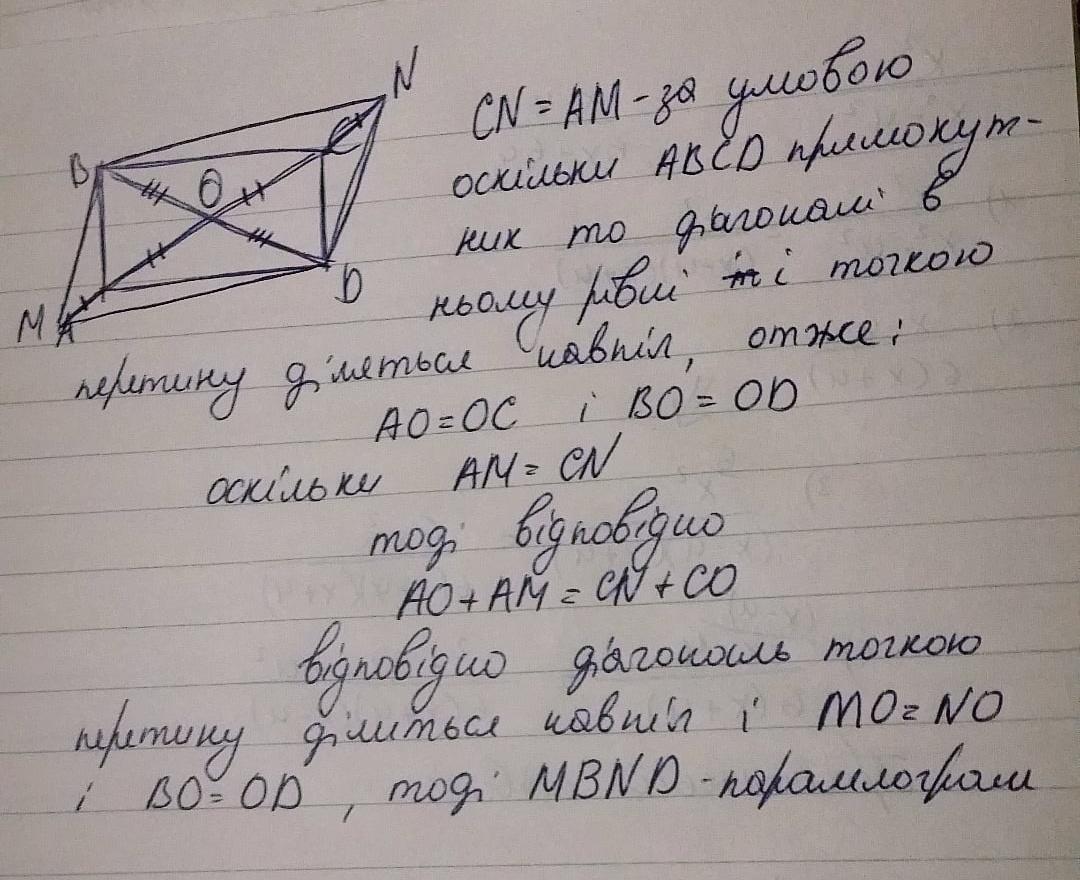 N
B
O
C
D
M
A
CN = AM - за умовою
оскільки ABCD прямокут-
ник то діагоналі в
ньому рівні і точкою
перетину діляться навпіл, отже:
AO = OC і BO = OD
оскільки AM = CN
тоді відповідно
AO + AM = CN + CO
відповідно діагональ точкою
перетину ділиться навпіл і MO = NO
і BO = OD , тоді MBND - паралограм